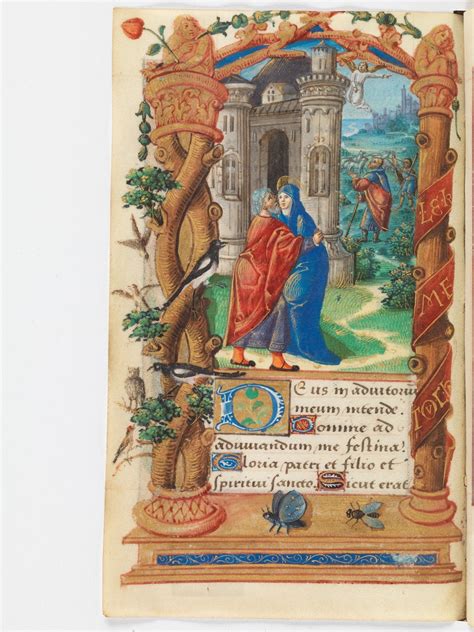 DEus in adiutoriu
meum intende.
Domine ad
adiuuandum me festina
Gloria patri et filio et
spiritui sancto. Sicut erat
ME